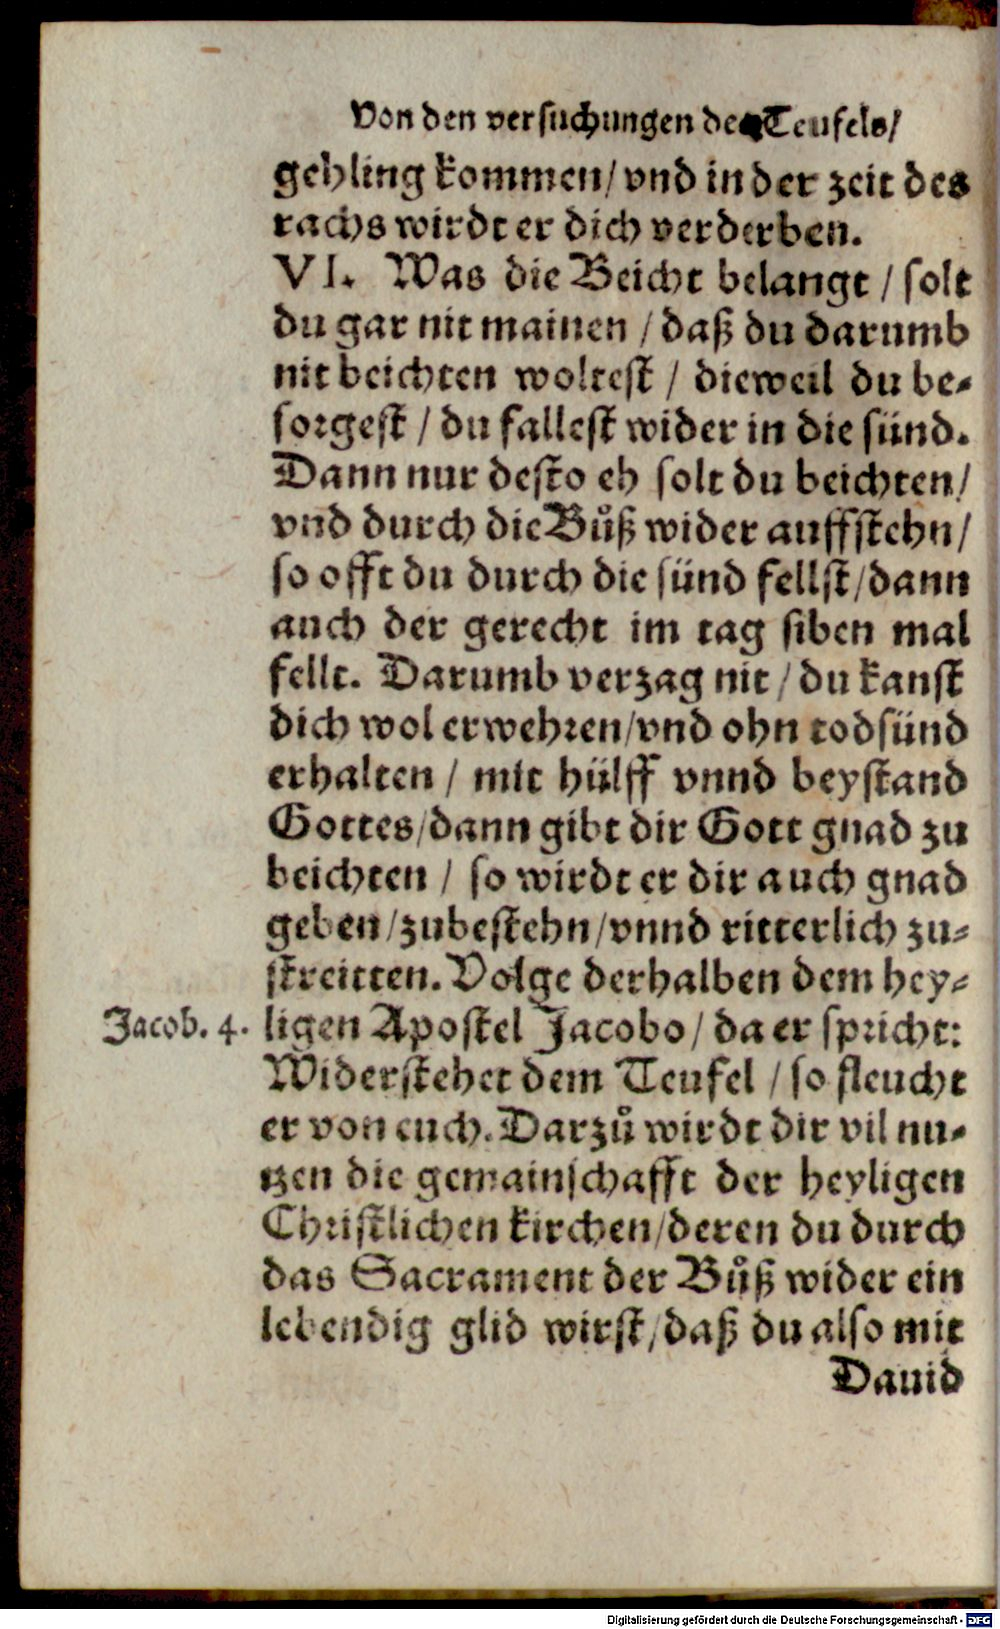 Von den versuchungen des Teufels/
gehling kommen/ vnd in der zeit des
rachs wirdt er dich verderben.
VI. Was die Beicht belangt / solt
du gar nit mainen / daß du darumb
nit beichten woltest / dieweil du be-
sorgest / du fallest wider in die sünd.
Dann nur desto eh solt du beichten/
vnd durch die Bůß wider auffstehn/
so offt du durch die sünd fellst/dann
auch der gerecht im tag siben mal
fellt. Darumb verzag nit / du kanst
dich wol erwehren/vnd ohn todsünd
erhalten / mit hülff vnnd beystand
Gottes/dann gibt dir Gott gnad zu
beichten / so wirdt er dir auch gnad
geben/zubestehn/vnnd ritterlich zu-
streitten. Volge derhalben dem hey-
Jacob. 4. ligen Apostel Jacobo/ da er spricht:
Widerstehet dem Teufel / so fleucht
er von euch. Darzů wirdt dir vil nu-
tzen die gemainschafft der heyligen
Christlichen kirchen/deren du durch
das Sacrament der Bůß wider ein
lebendig glid wirst/daß du also mit
Dauid
Digitalisierung gefördert durch die Deutsche Forschungsgemeinschaft - DFG